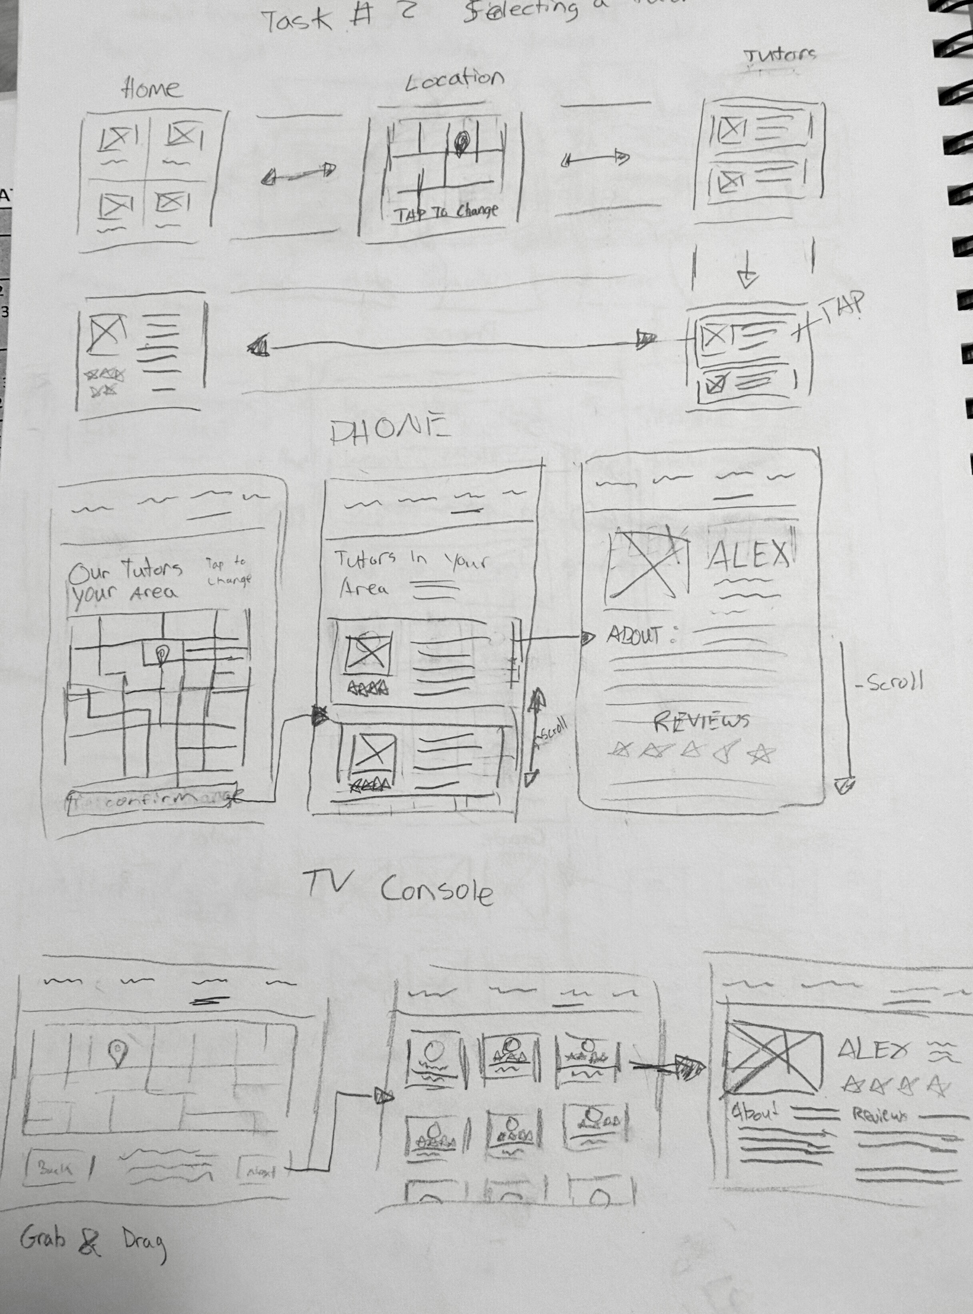 Task # 2 Selecting a
Home
Location
Tutors
TAP To Change
TAP
PHONE
Our Tutors
your Area
Tap to
change
Tutors In your
Area
scroll
ALEX
ABOUT:
REVIEWS
-Scroll
confirm
TV Console
Back
Next
ALEX
About
Reviews
Grab & Drag